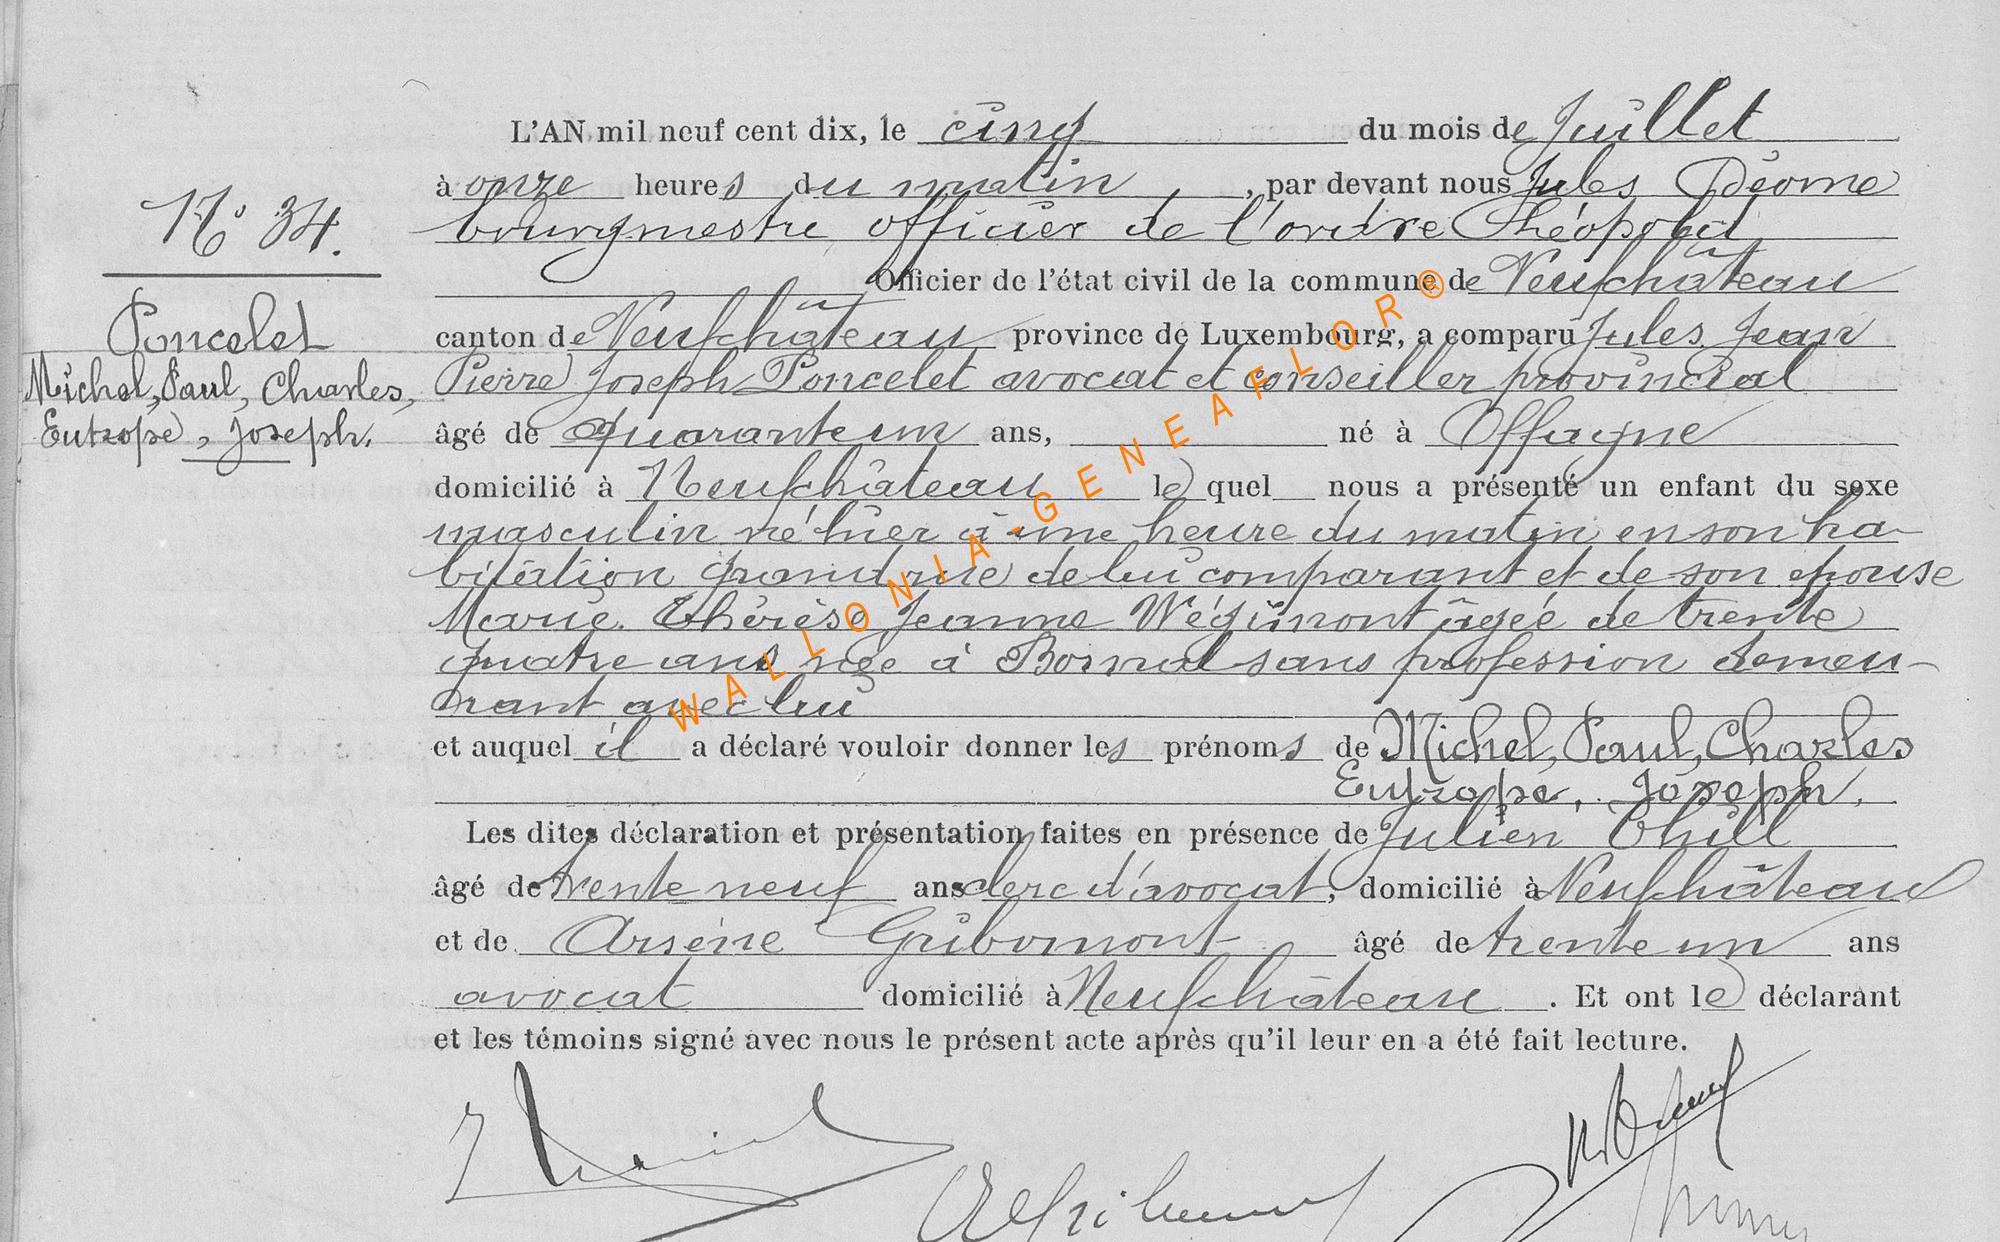 L'AN mil neuf cent dix, le cinq du mois de Juillet
à onze heures du matin, par devant nous Jules Déome
bourgmestre officier de l'ordre Théopold
Officier de l'état civil de la commune de Neufchâteau
canton de Neufchâteau province de Luxembourg, a comparu Jules Jean
Pierre Joseph Poncelet avocat et conseiller provincial
âgé de quarante un ans, né à Offagne
domicilié à Neufchâteau lequel nous a présenté un enfant du sexe
masculin né hier à une heure du matin en son ha-
bitation grand rue de lui comparant et de son épouse
Marie Thérèse Jeanne Wégimont âgée de trente
quatre ans née à Bornal sans profession demeu-
rant avec lui
et auquel il a déclaré vouloir donner les prénoms de Michel, Paul, Charles
Eutrope, Joseph.
Les dites déclaration et présentation faites en présence de Julien Thill
âgé de trente neuf ans clerc d'avocat, domicilié à Neufchâteau
et de Arsène Gribomont âgé de trente un ans
avocat domicilié à Neufchâteau. Et ont le déclarant
et les témoins signé avec nous le présent acte après qu'il leur en a été fait lecture.
N° 34.
Poncelet
Michel, Paul, Charles,
Eutrope, Joseph.
WALLONIA-GENEAFLOR®